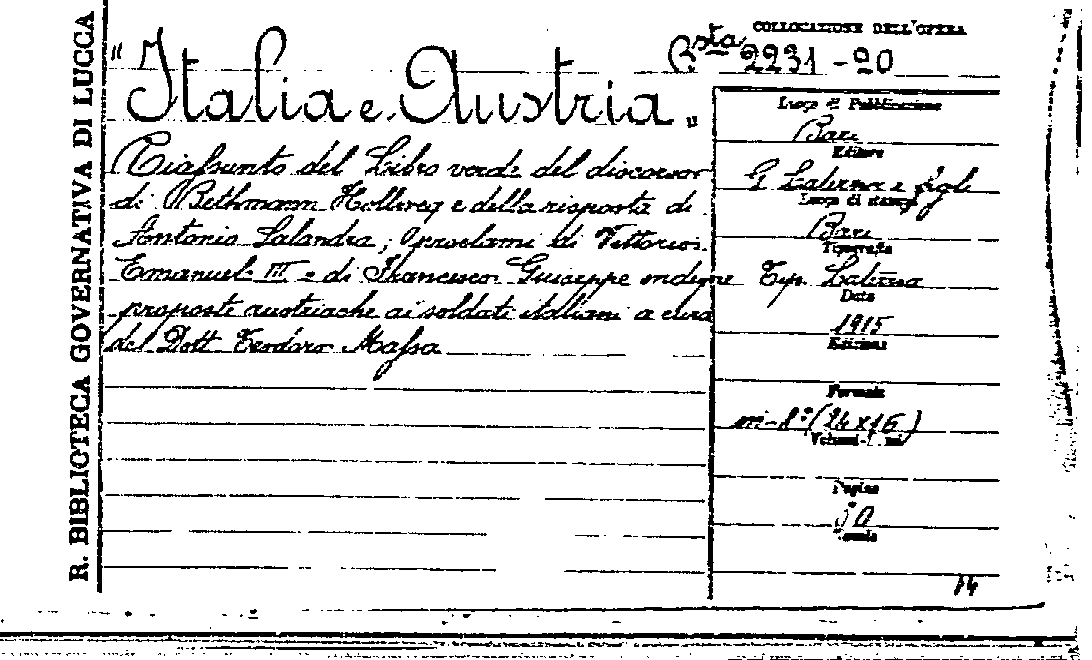 R. BIBLIOTECA GOVERNATIVA DI LUCCA
"Italia e Austria"
Riassunto del Libro verde del discorso
di Bethmann Hollweg e della risposta di
Antonio Salandra; I proclami di Vittorio
Emanuele III e di Francesco Giuseppe indegne
proposte austriache ai soldati italiani a cura
del Dott Teodoro Massa
COLLOCAZIONE DELL'OPERA
Bsta 2231-20
Luogo di Pubblicazione
Bari
Editore
G Laterza e figli
Luogo di stampa
Bari
Tipografia
Tip. Laterza
Data
1915
Edizione
Formato
in-8° (24x16)
Pagine
14